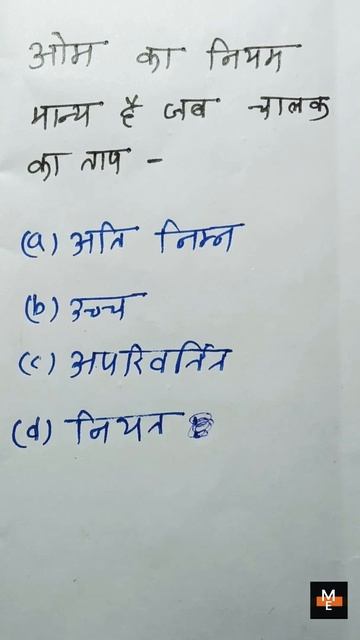 ओम का नियम
मान्य है जब चालक
का ताप -
(a) अति निम्न
(b) उच्च
(c) अपरिवर्तित
(d) नियत
ME